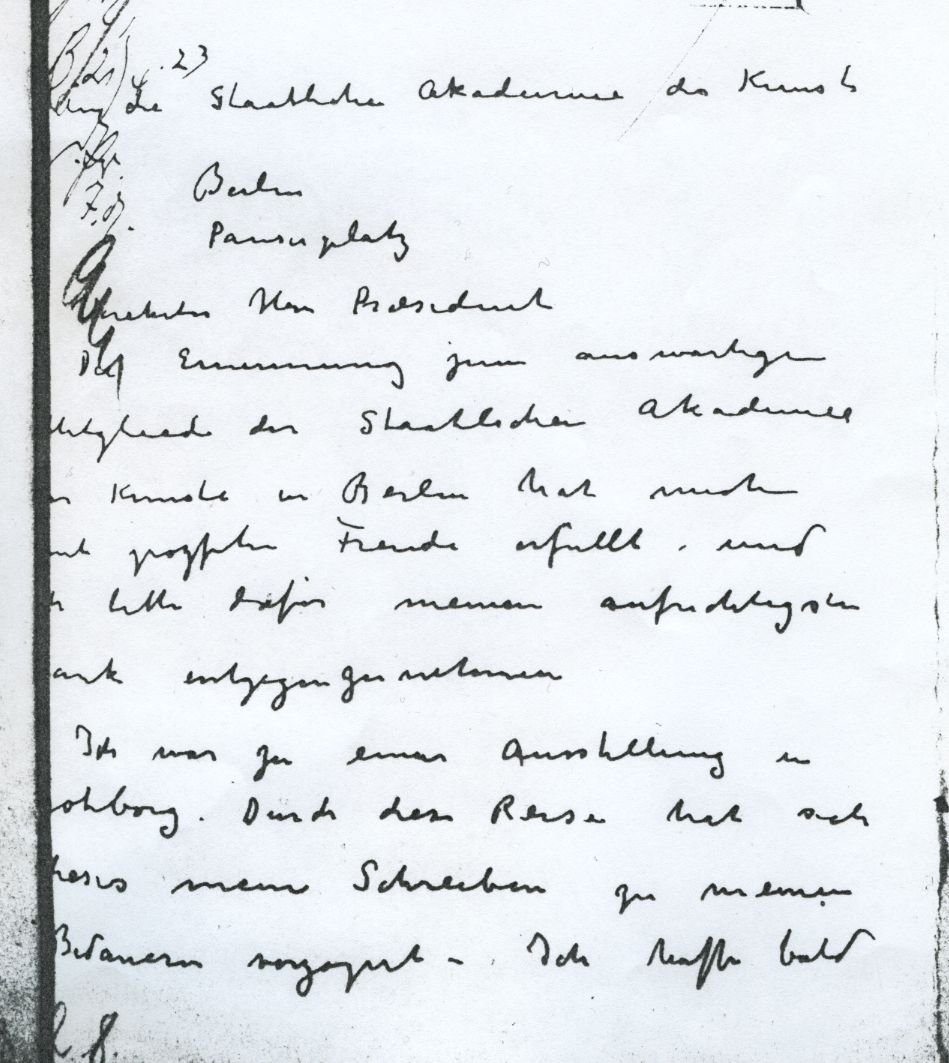 23
die Staatliche Akademie der Künste
Berlin
Pariserplatz
Verehrter Herr Præsident
Die Ernennung zum auswärtigen
Mitgliede der Staatlichen Akademie
Künste in Berlin hat mich
mit grosster Freude erfüllt, und
bitte dafür meinen aufrichtigsten
ank entgegenzunehmen
Ich war zu einer Ausstellung in
othborg. Durch diese Reise hat sich
dieses mein Schreiben zu meinem
Bedauern verzögert – Ich hoffe bald